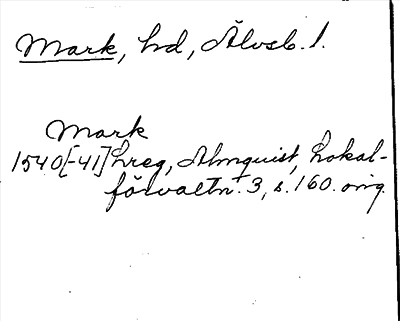 Mark, hd, Älvsb. l.
Mark
1540[-41] hreg, Almquist, Lokal-
förvaltn. 3, s. 160. orig.